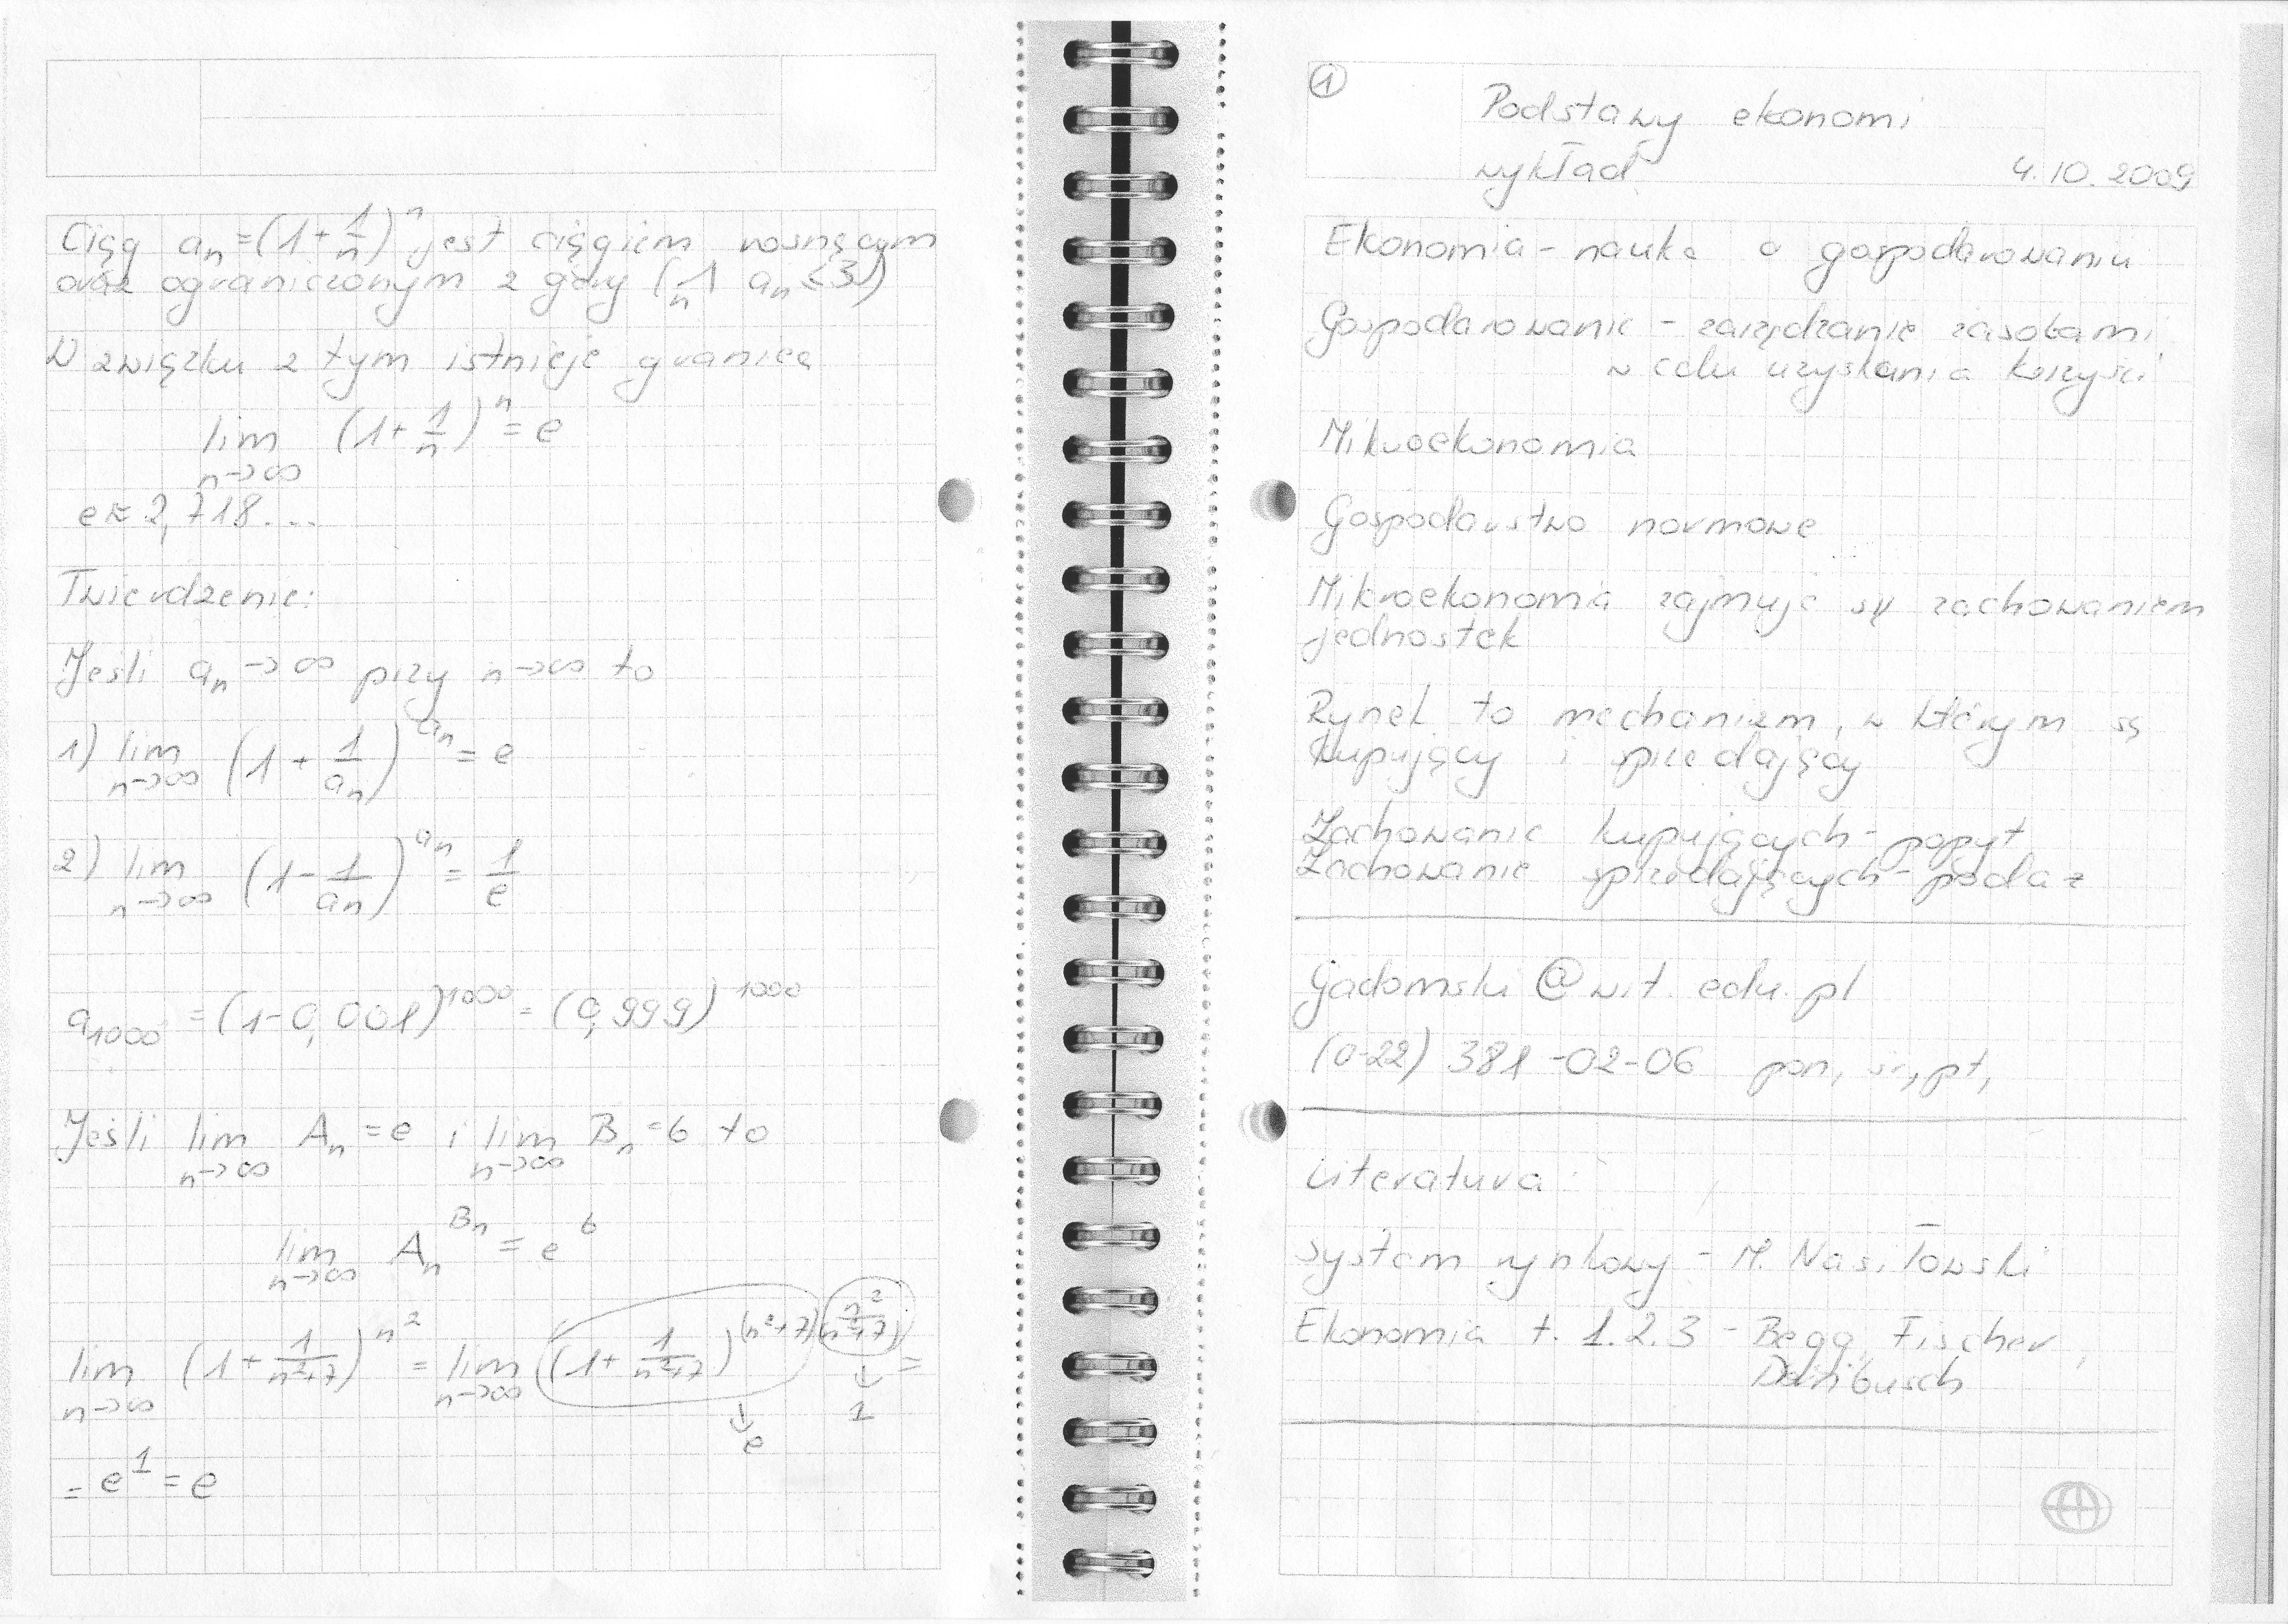 Ciąg aₙ = (1 + 1/n)ⁿ jest ciągiem rosnącym
oraz ograniczonym z góry (⋀ₙ aₙ ≤ 3)
W związku z tym istnieje granica
lim n→∞ (1 + 1/n)ⁿ = e
e ≈ 2,718...
Twierdzenie:
Jeśli aₙ → ∞ przy n → ∞ to
1) lim n→∞ (1 + 1/aₙ)^aₙ = e
2) lim n→∞ (1 - 1/aₙ)^aₙ = 1/e
a₁₀₀₀ = (1-0,001)^1000 = (0,999)^1000
Jeśli lim n→∞ Aₙ = e i lim n→∞ Bₙ = b to
lim n→∞ Aₙ^Bₙ = e^b
lim n→∞ (1 + 1/(n²+7))^n² = lim n→∞ (1 + 1/(n²+7))^(n²+7) (n²/(n²+7)) =
↓ e ↓ 1
= e^1 = e
1
Podstawy ekonomi
wykład 4.10.2009
Ekonomia - nauka o gospodarowaniu
Gospodarowanie - zarządzanie zasobami
w celu uzyskania korzyści
Mikroekonomia
Gospodarstwo normowe
Mikroekonomia zajmuje się zachowaniem
jednostek
Rynek to mechanizm, w którym są
kupujący i sprzedający
Zachowanie kupujących - popyt
Zachowanie sprzedających - podaż
gadomski@wit.edu.pl
(0-22) 381-02-06 pon, śr, pt,
Literatura
System rynkowy - M. Nasiłowski
Ekonomia t. 1.2.3 - Begg, Fischer,
Dornbusch